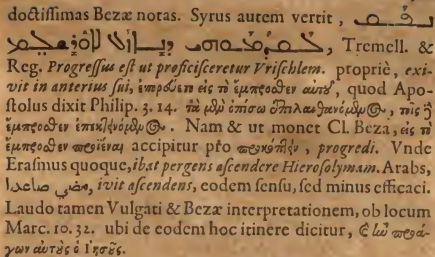 doctiſſimas Bezæ notas. Syrus autem vertit, ܢܦܩ
ܠܩܕܡܘܗܝ ܕܢܐܙܠ ܠܐܘܪܫܠܡ, Tremell. &
Reg. Progreſſus eſt ut proficiſceretur Vriſchlem. propriè, exi-
vit in anterius ſui, ἐπορεύετο εἰς τὸ ἔμπροσθεν αὐτοῦ, quod Apo-
ſtolus dixit Philip. 3. 14. τὰ μὲν ὀπίσω ἐπιλανθανόμενος, τοῖς δὲ
ἔμπροσθεν ἐπεκτεινόμενος. Nam & ut monet Cl. Beza, εἰς τὸ
ἔμπροσθεν πορεύεσθαι accipitur pro προκόπτειν, progredi. Vnde
Eraſmus quoque, ibat pergens aſcendere Hieroſolymam. Arabs,
مضي صاعدا, ivit aſcendens, eodem ſenſu, ſed minus efficaci.
Laudo tamen Vulgati & Bezæ interpretationem, ob locum
Marc. 10. 32. ubi de eodem hoc itinere dicitur, ἐ ἦν προά-
γων αὐτοὺς ὁ Ἰησῦς.